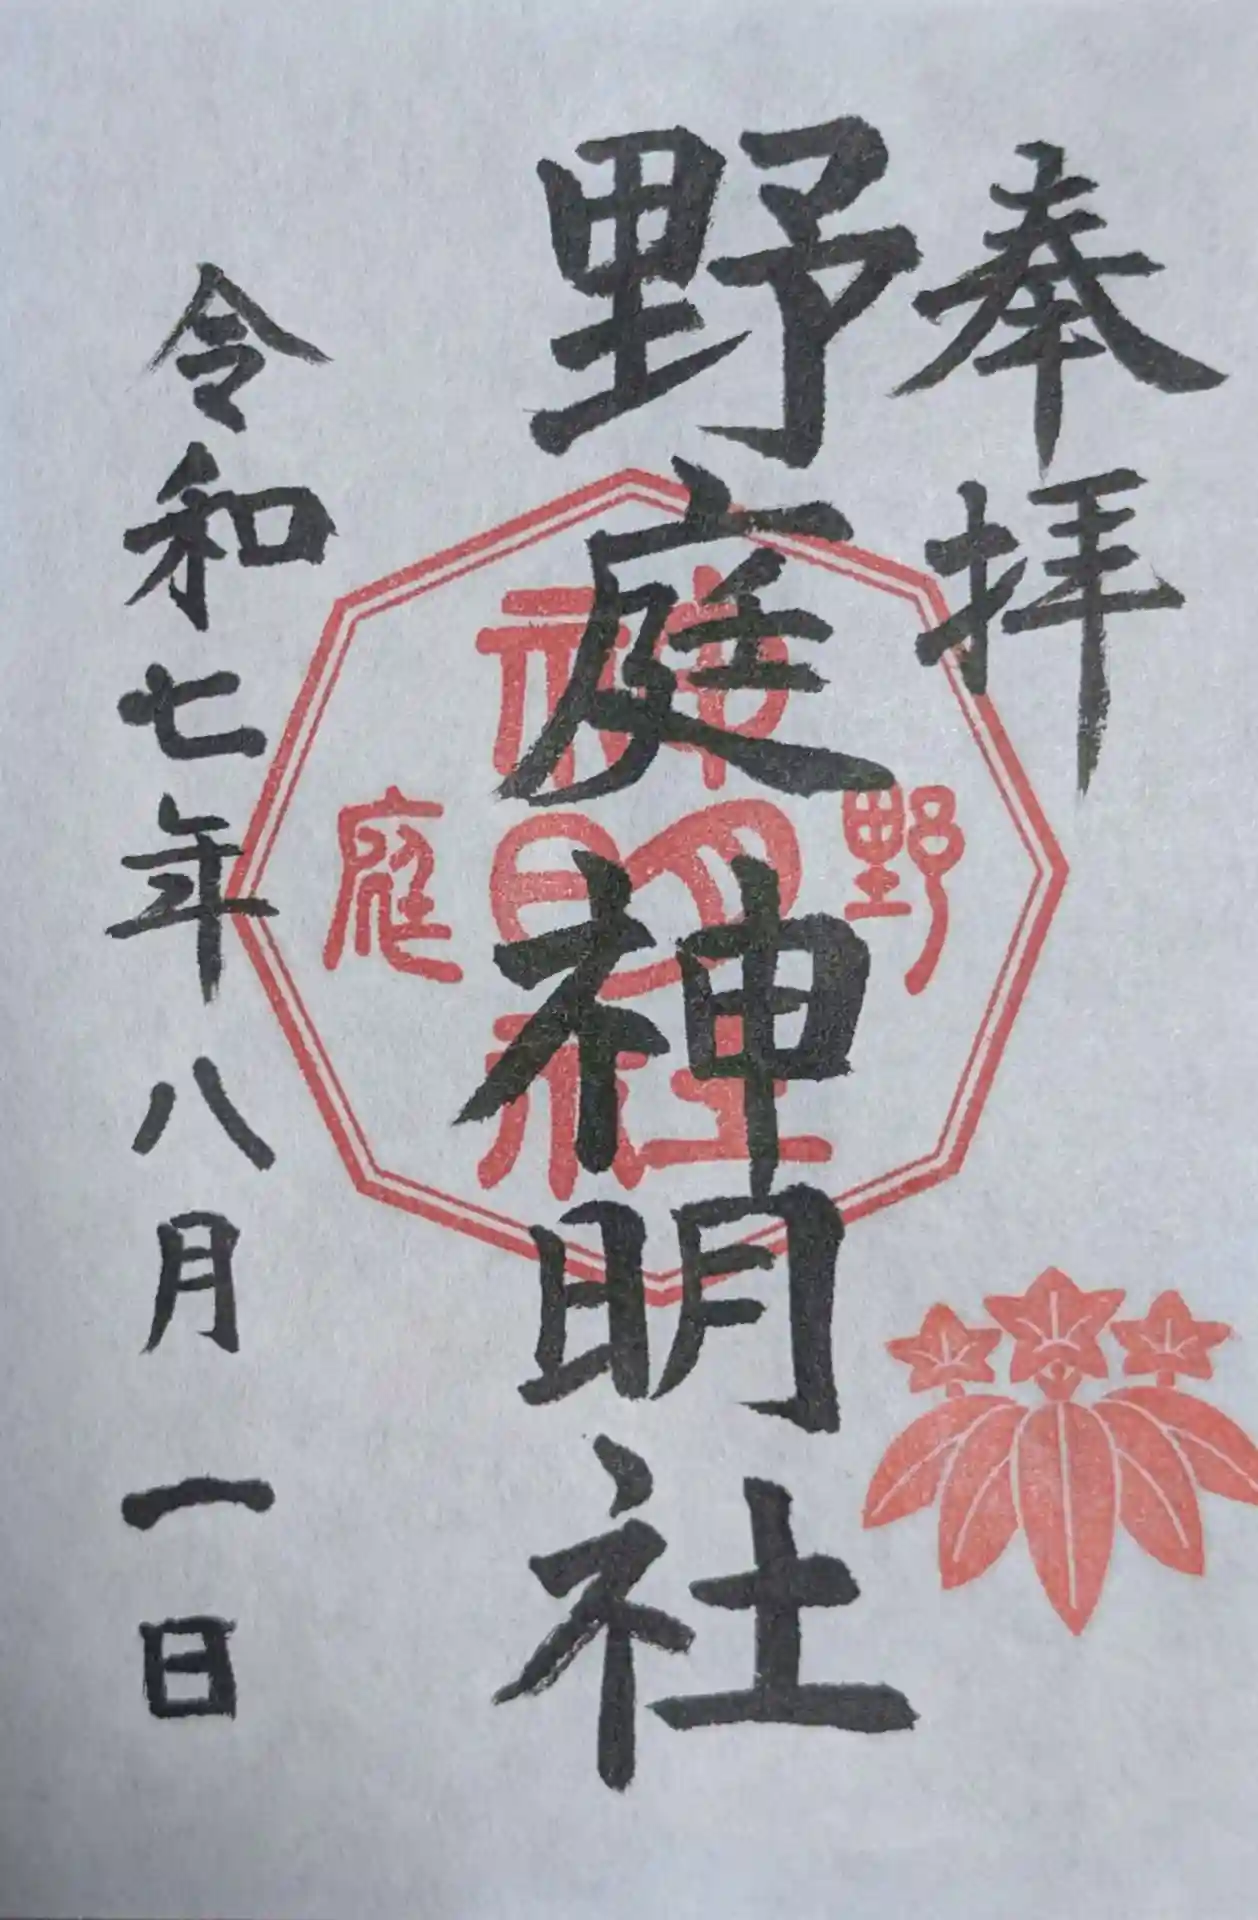 奉拝
野庭神明社
野
神明社
庭
令和七年八月一日